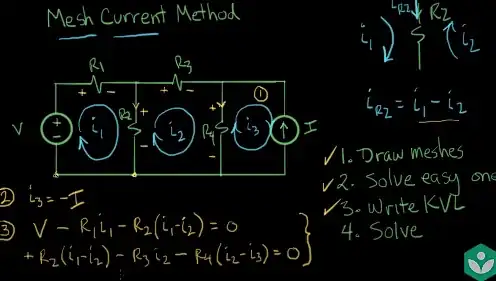 Mesh Current Method
iR2 R2
i1 i2
R1 R3
+ - + -
V + - R2 + - R4 + - ① I
i1 i2 i3
iR2 = i1 - i2
✓ 1. Draw meshes
✓ 2. Solve easy one
✓ 3. Write KVL
4. Solve
② i3 = -I
③ V - R1i1 - R2(i1-i2) = 0
+ R2(i1-i2) - R3i2 - R4(i2-i3) = 0